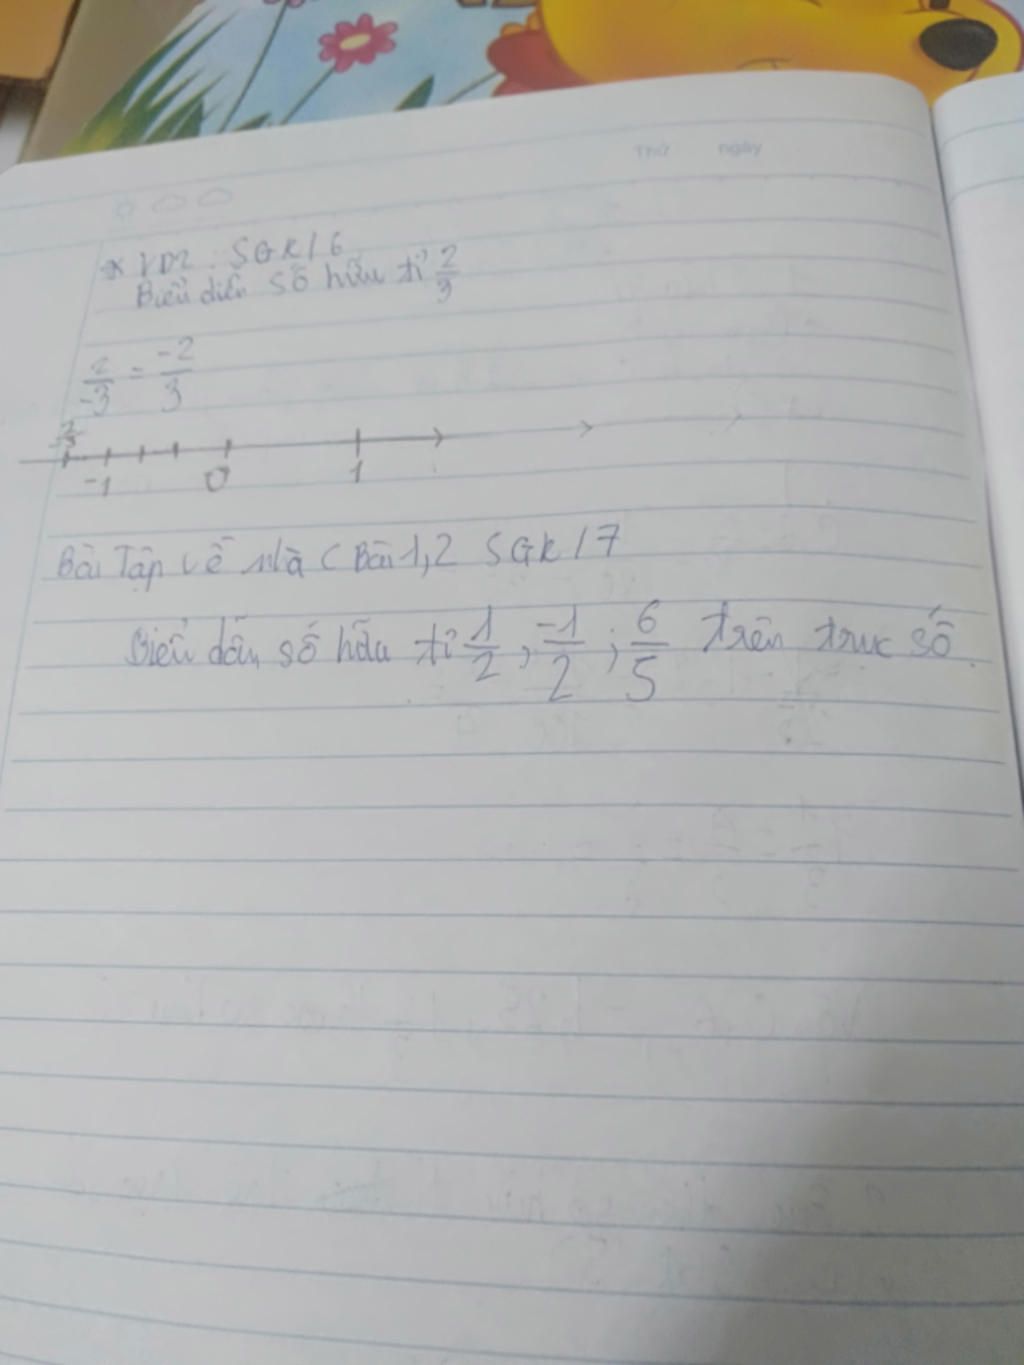 Thứ ngày
* VD2: SGK/6
Biểu diễn số hữu tỉ 2/3
2/-3 = -2/3
-1 0 1
Bài Tập về nhà ( Bài 1,2 SGK/7
Biểu dễn số hữu tỉ 1/2, -1/2; 6/5 trên trục số.